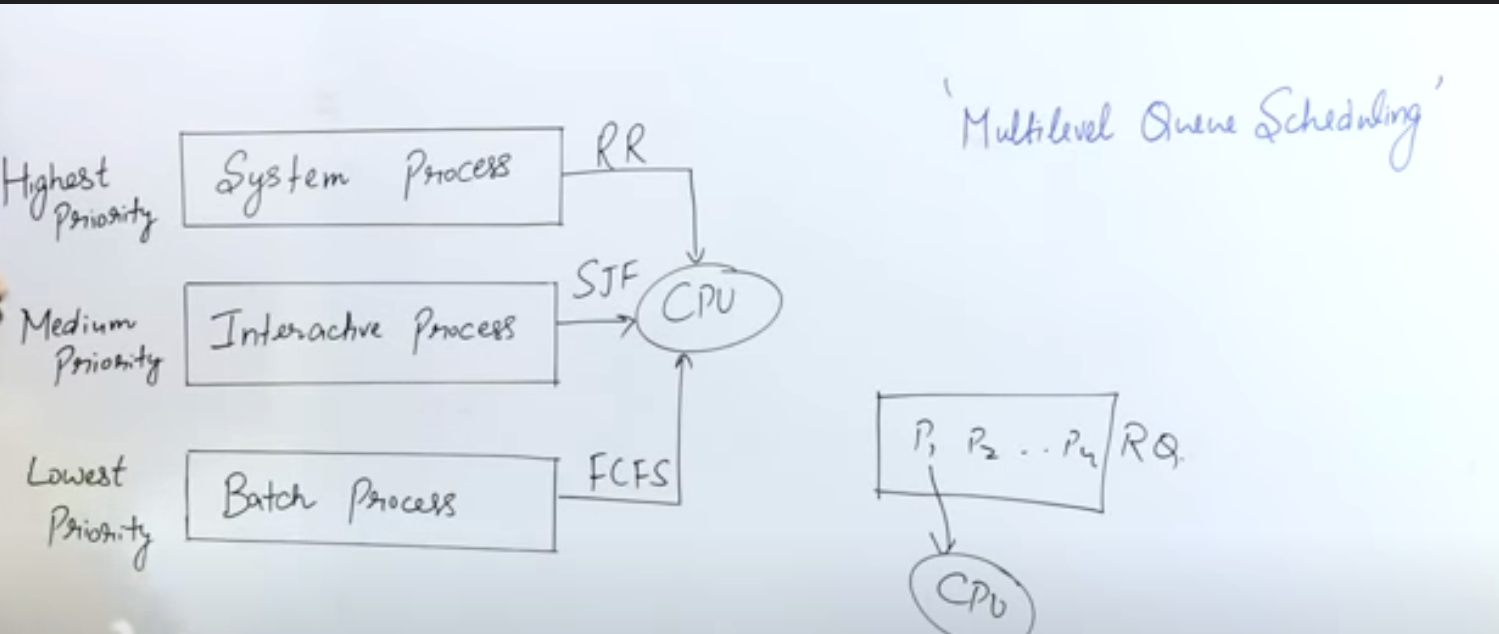 'Multilevel Queue Scheduling'
Highest
Priority
System Process
RR
Medium
Priority
Interactive Process
SJF
CPU
Lowest
Priority
Batch Process
FCFS
P1 P2 .. Pn RQ
CPU